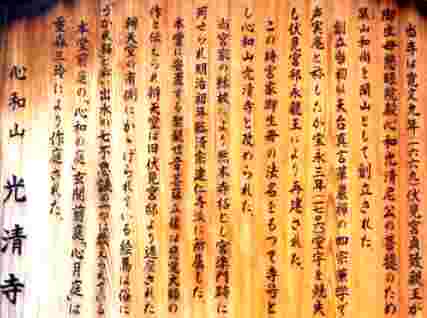 当寺は寛文九年(一六六九)伏見宮貞致親王が
御生母慈眼院殿心和光清尼公の菩提のため
山和尚を開山として創立された。
創立当初は天台真言華厳禅の四宗兼学で
声実庵と称したが宝永三年(一七〇六)堂宇を焼失
し伏見宮邦永親王により再建された。
この時宮家御生母の法名をもって寺号と
し心和山光清寺と改められた。
当宮家の縁故により無本寺格とし宮準門跡に
列せられ明治初年臨済宗建仁寺派に所属した。
本堂に安置する聖観世音菩薩立像は慈覚大師の
作と伝えられ辨天堂は旧伏見宮邸より遷座された
辨天堂の右側にかかげられている絵馬は俗に
うかれ猫と称し出水の七不思議の一つに数えられている
本堂前庭の「心和の庭」玄関前庭「心月庭」は
重森三玲により作庭された。
心和山 光清寺